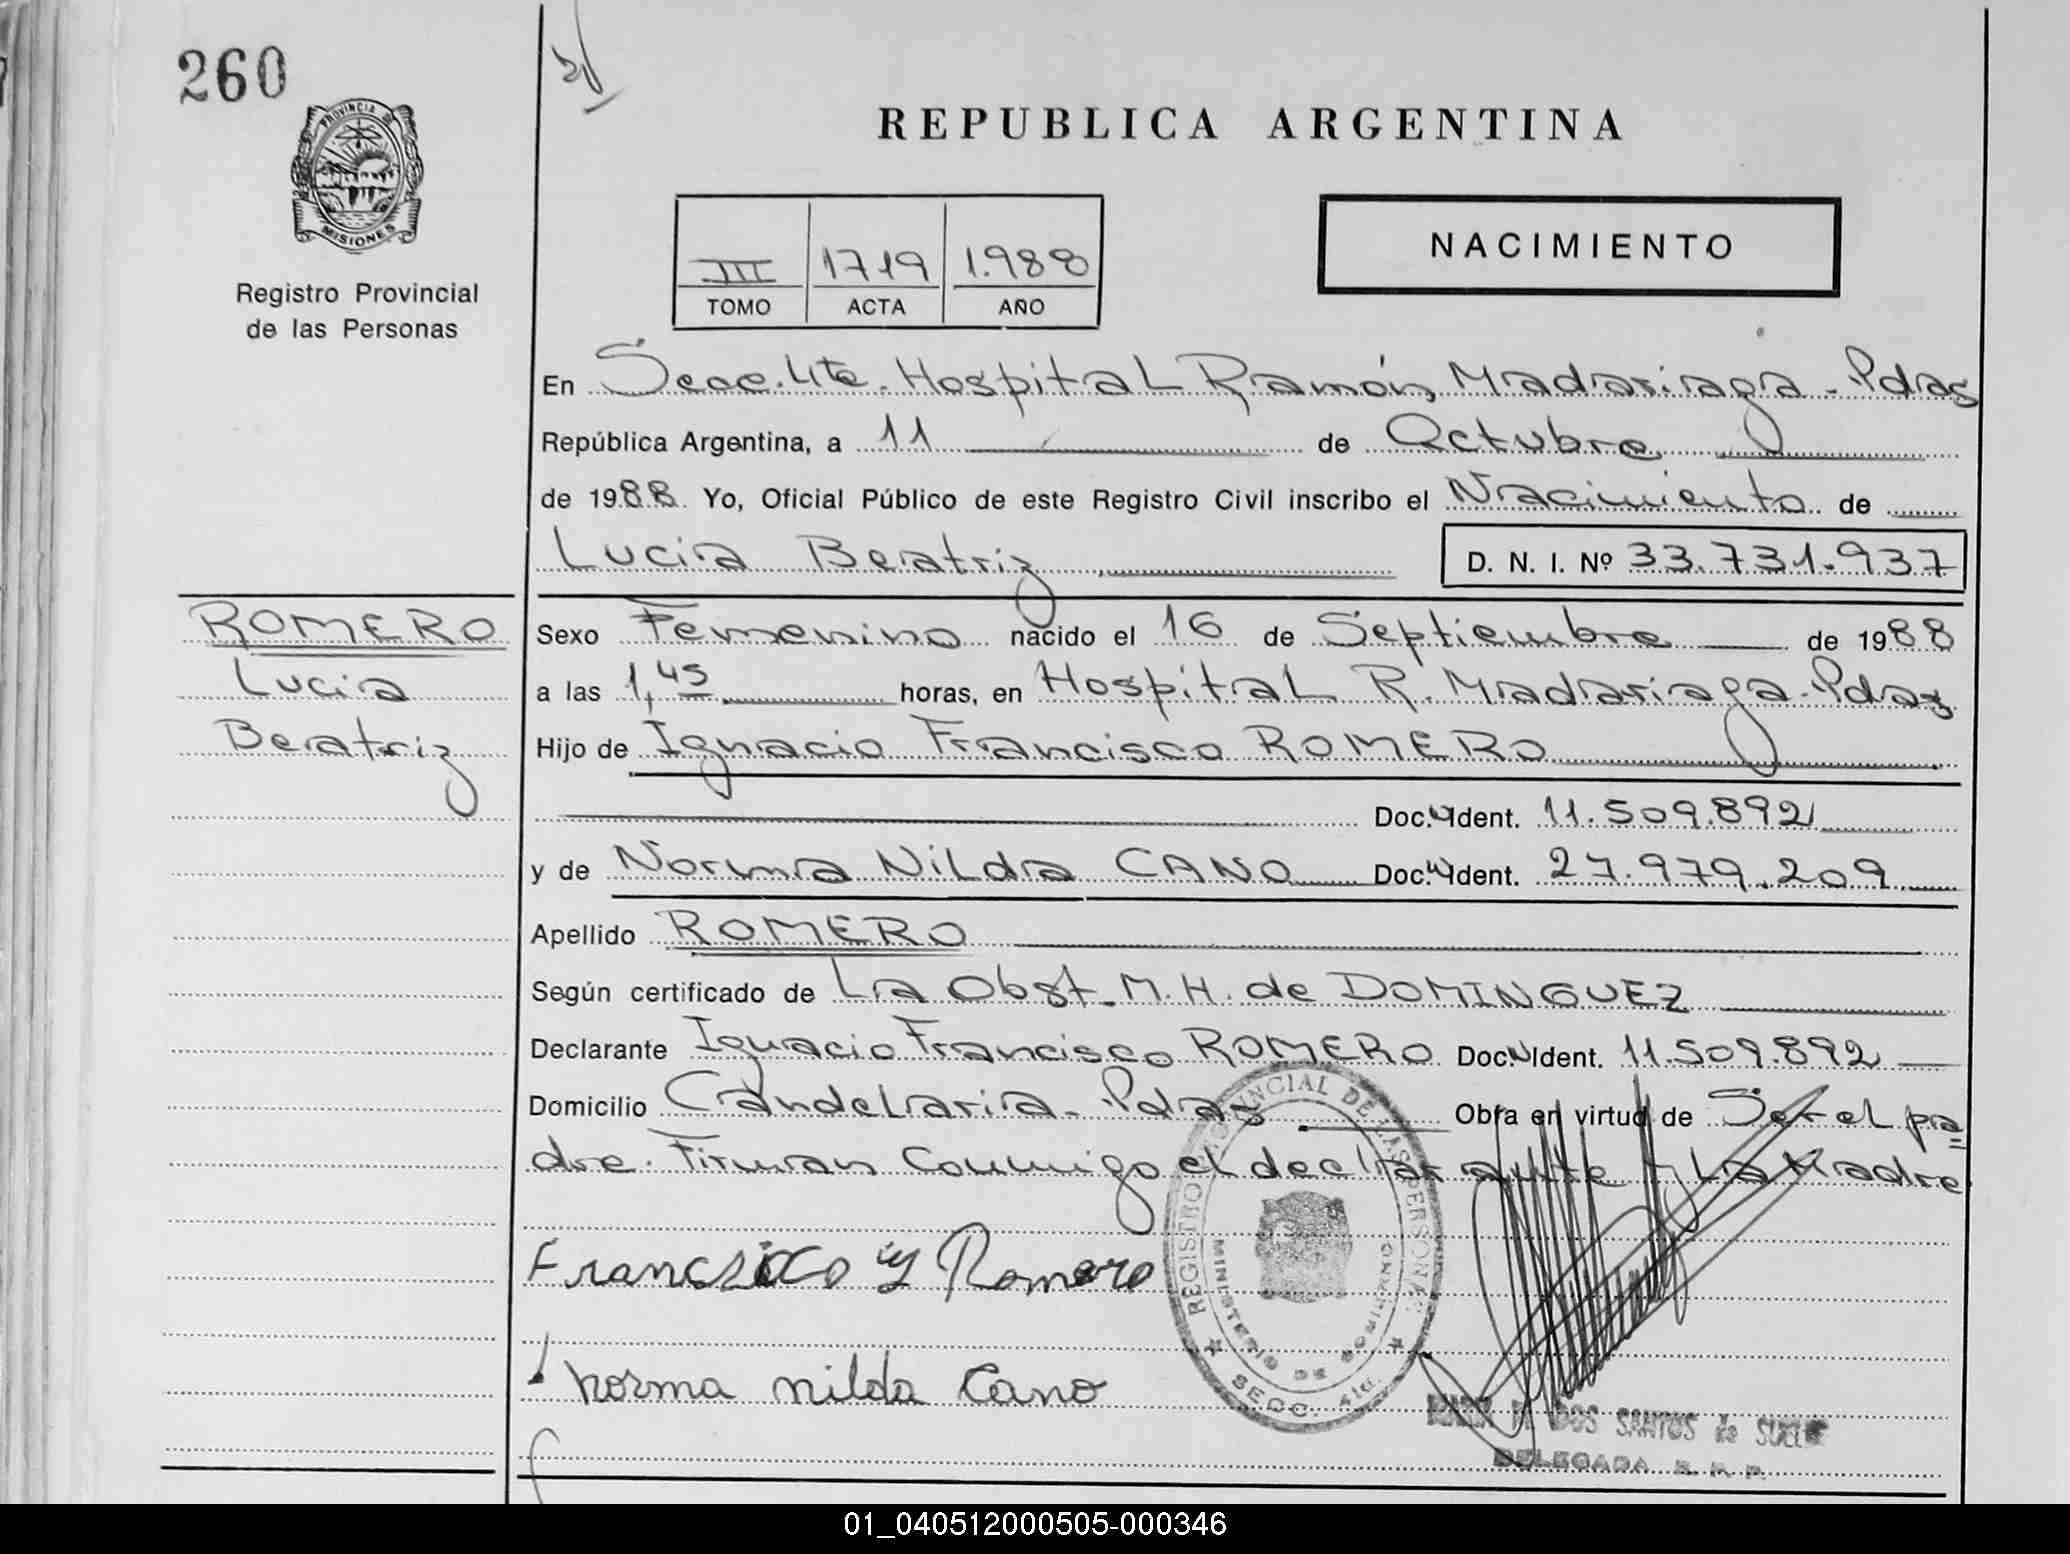 260
REPUBLICA ARGENTINA
PROVINCIA DE
MISIONES
Registro Provincial
de las Personas
III 1719 1.988
TOMO ACTA AÑO
NACIMIENTO
En Secc. 4ta. Hospital Ramón Madariaga - Pdas
República Argentina, a 11 de Octubre
de 1988. Yo, Oficial Público de este Registro Civil inscribo el Nacimiento de
Lucia Beatriz D. N. I. Nº 33.731.937
ROMERO
Lucia
Beatriz
Sexo Femenino nacido el 16 de Septiembre de 1988
a las 1,45 horas, en Hospital R. Madariaga - Pdas
Hijo de Ignacio Francisco ROMERO
Doc. Ident. 11.509.892
y de Norma Nilda CANO Doc. Ident. 27.979.209
Apellido ROMERO
Según certificado de La Obst. M. H. de DOMINGUEZ
Declarante Ignacio Francisco ROMERO Doc. Ident. 11.509.892
Domicilio Candelaria - Pdas Obra en virtud de Ser el pa=
dre. Firman Conmigo el declarante y La Madre
Francsico y Romero
norma nilda Cano
REGISTRO PROVINCIAL DE LAS PERSONAS
MINISTERIO DE GOBIERNO
SECC. 4ta.
DOS SANTOS de
DELEGADA R. P. P.
01_040512000505-000346